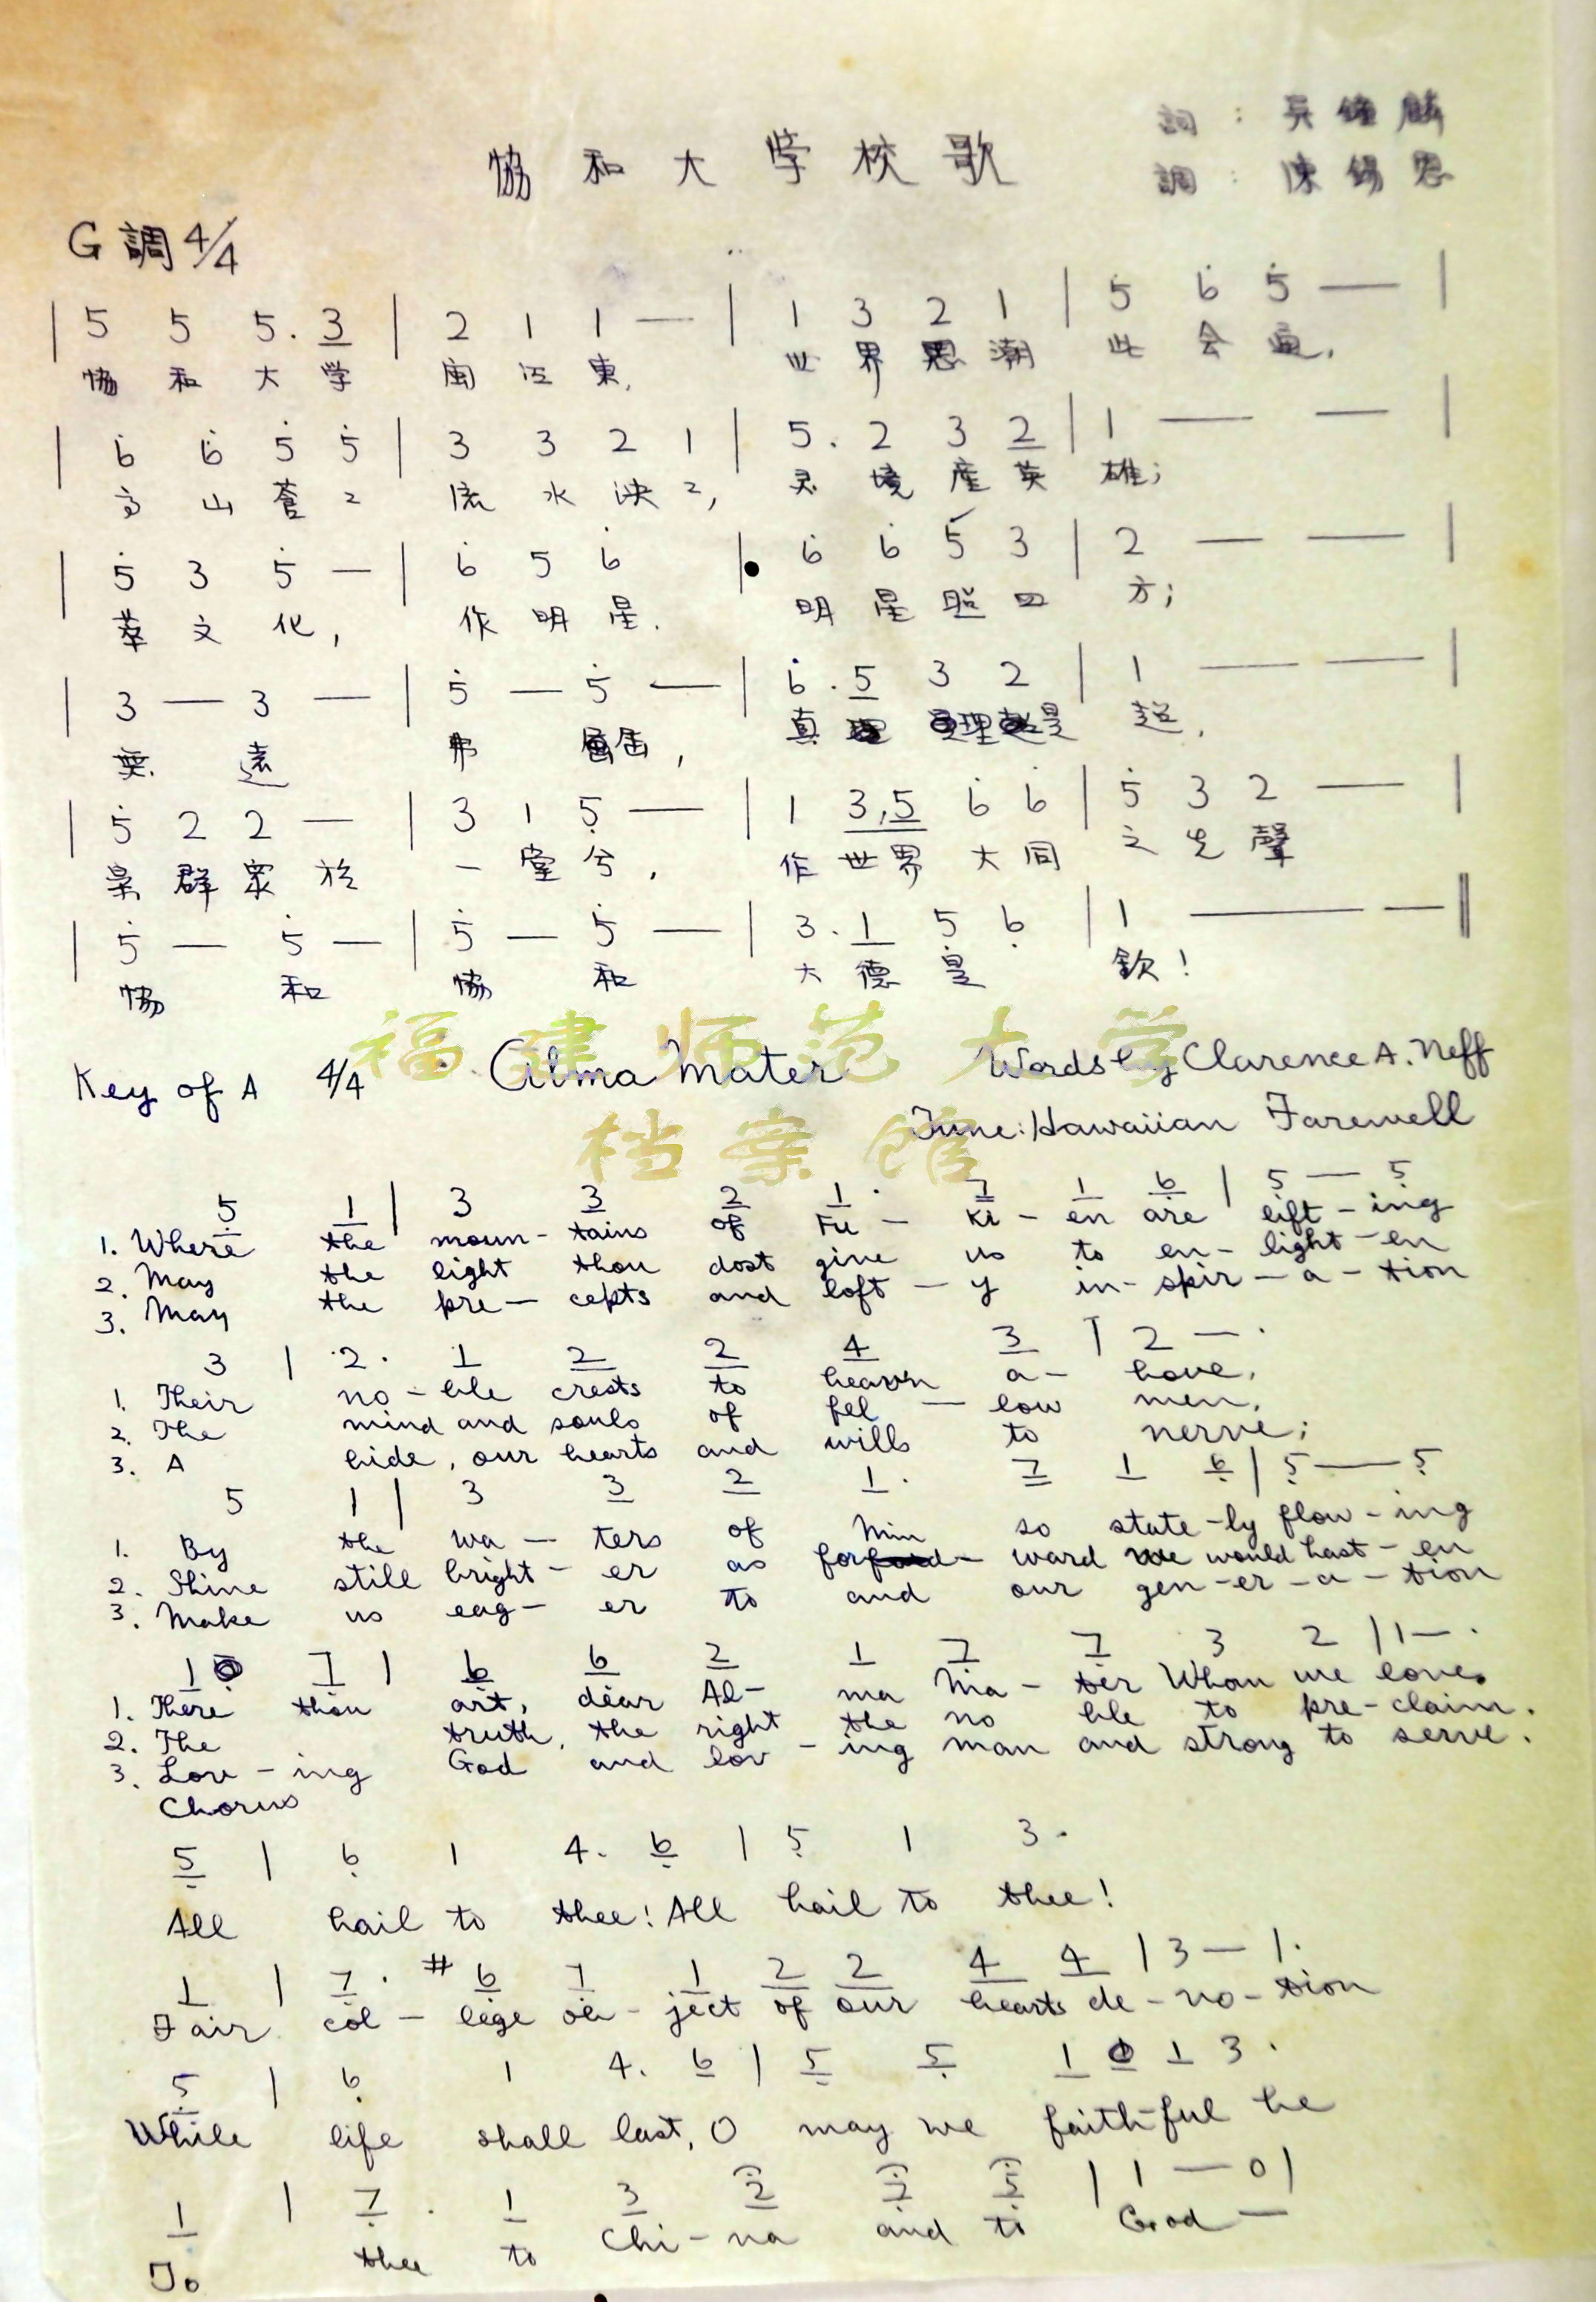 協和大学校歌
詞：吳鐘麟
調：陳錫恩
G調 4/4
| 5 5 5. 3 | 2 1 1 — | 1 3 2 1 | 5̇ 6̇ 5̇ — |
協和大学 閩江東, 世界思潮 此会通,
| 6̇ 6̇ 5̇ 5̇ | 3 3 2 1 | 5. 2 3 2 | 1 — — |
高山蒼〻 流水泱〻, 灵境產英 雄;
| 5̇ 3 5̇ — | 6̇ 5 6̇ | 6̇ 6̇ 5 3 | 2 — — |
萃文化, 作明星. 明星照四 方;
| 3 — 3 — | 5̇ — 5̇ — | 6̇. 5 3 2 | 1 — — |
無遠 弗届, 真理是 超.
| 5̇ 2 2 — | 3 1 5̣ — | 1 3,5 6̇ 6̇ | 5̇ 3 2 — |
集群眾於 一堂兮, 作世界大同 之先聲
| 5̇ — 5̇ — | 5̇ — 5̇ — | 3. 1 5̣ 6̣ | 1 — — ‖
協 和 協 和 大德是 欽!
福建师范大学
档案馆
Key of A 4/4 Alma Mater Words by Clarence A. Neff
Tune: Hawaiian Farewell
5 1 | 3 3 2 1. 7 1 6 | 5 — 5
1. Where the moun-tains of Fu-ki-en are lift-ing
2. May the light thou dost give us to en-light-en
3. May the pre-cepts and loft-y in-spir-a-tion
3 | 2. 1 2 2 4 3 | 2 — .
1. Their no-ble crests to heavn a-bove,
2. The mind and souls of fel-low men,
3. A bide, our hearts and wills to nerve;
5 1 | 3 3 2 1. 7 1 6 | 5 — 5
1. By the wa-ters of Min so state-ly flow-ing
2. Shine still bright-er as for-ward we would hast-en
3. Make us eag-er to and our gen-er-a-tion
1 7 | 6 6 2 1 7 7 3 2 | 1 — .
1. There thou art, dear Al-ma Ma-ter Whom we love.
2. The truth, the right the no ble to pre-claim.
3. Lov-ing God and lov-ing man and strong to serve.
Chorus
5 | 6 1 4. 6 | 5 1 3.
All hail to thee! All hail to thee!
1 | 7. #6 7 1 2 2 4 4 | 3 — 1.
Fair col-lege ob-ject of our hearts de-vo-tion
5 | 6 1 4. 6 | 5 5 1 1 3.
While life shall last, O may we faith-ful be
1 | 7. 1 3 2 7 5 | 1 — 0 |
To thee to Chi-na and to God —